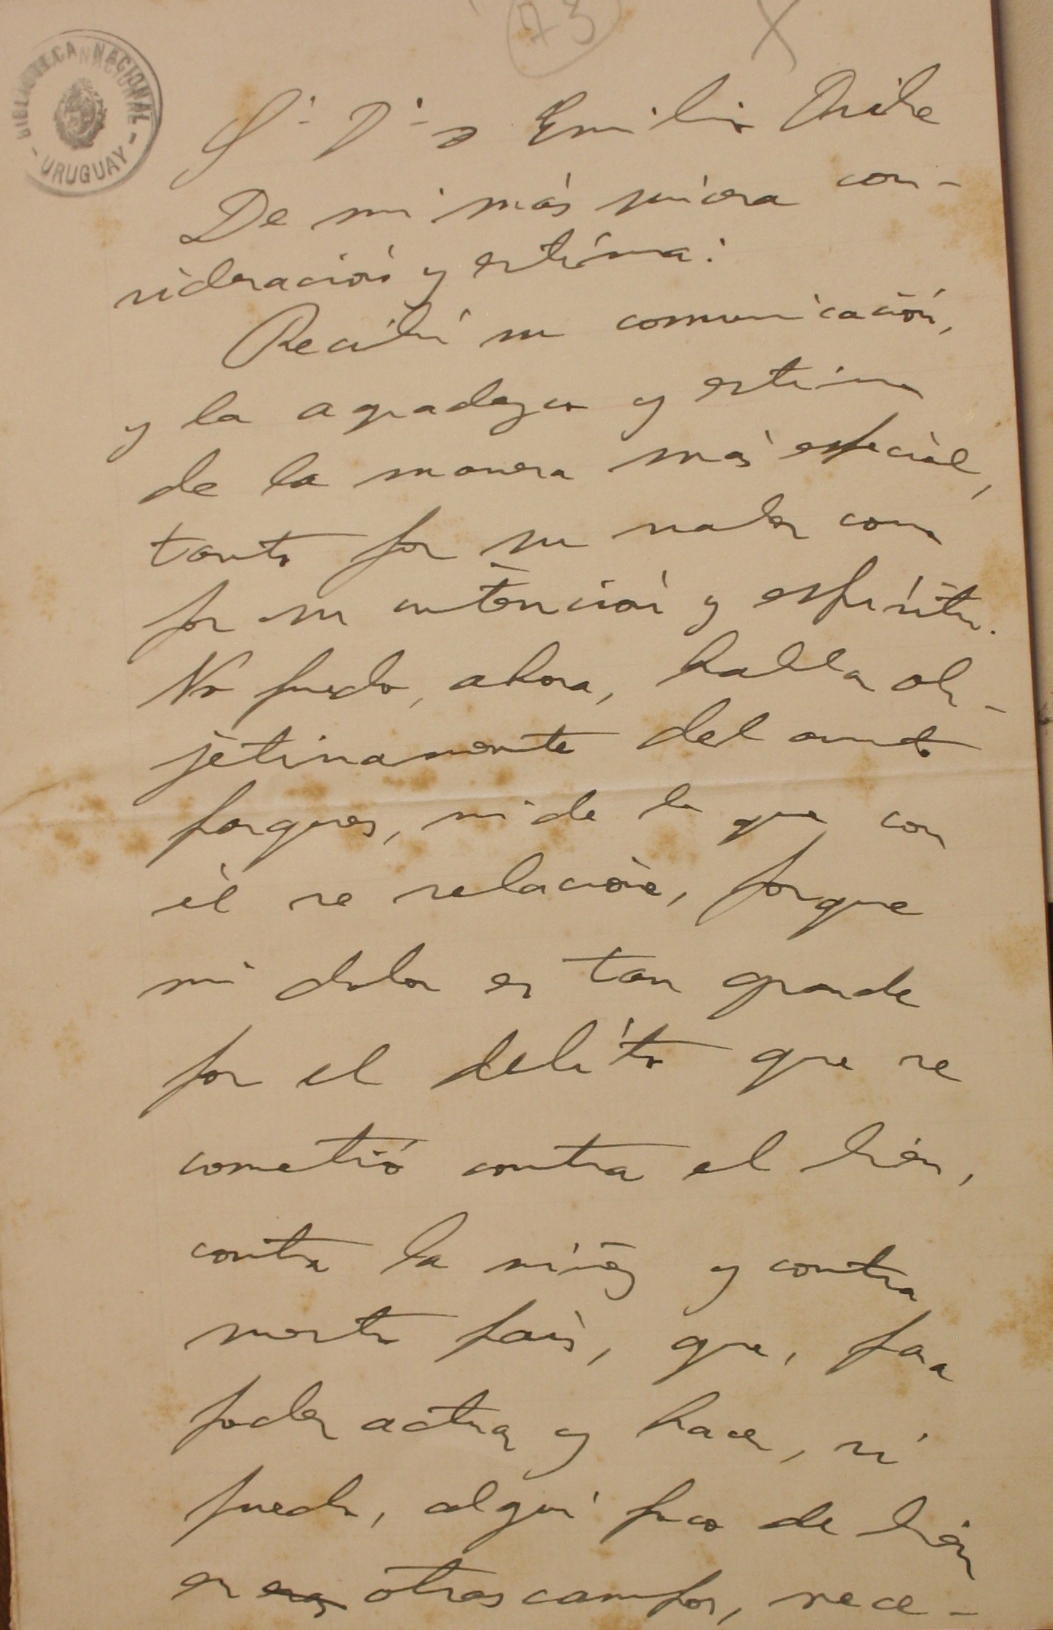 73 X
BIBLIOTECA NACIONAL
- URUGUAY -
Sr. Dr. D Emilio Oribe
De mi más sincera con-
sideración y estima:
Recibí su comunicación,
y la agradezco y estimo
de la manera más especial,
tanto por su valor como
por su intención y espíritu.
No puedo, ahora, hablar ob-
jetivamente del asunto
parques, ni de lo que con
él se relacione, porque
mi dolor es tan grande
por el delito que se
cometió contra el bien,
contra la niñez y contra
nuestro país, que, para
poder actuar y hacer, si
puedo, algún poco de bien
en otros campos, nece-